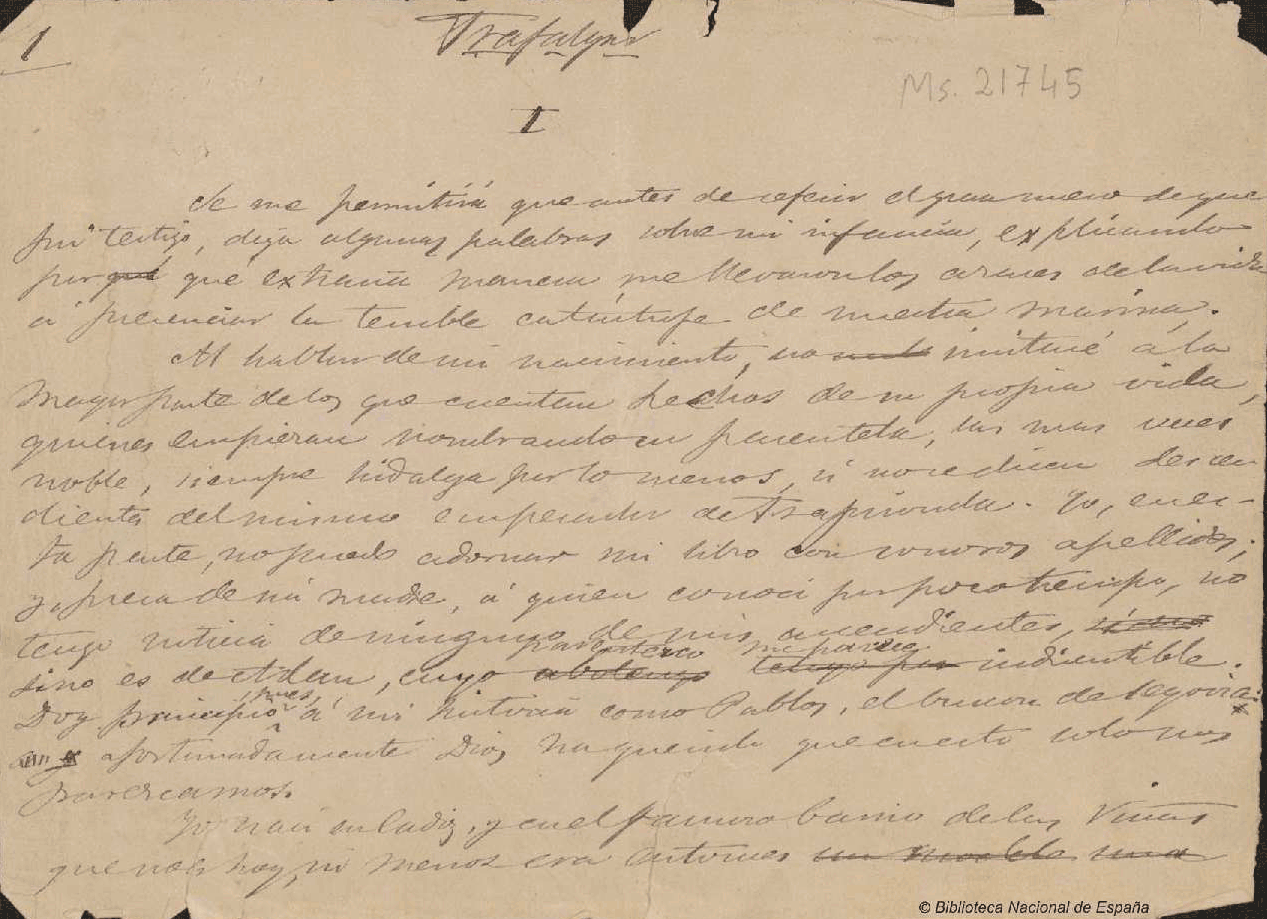 1
Trafalgar
Ms. 21745
I
Se me permitirá que antes de referir el gran suceso de que
fuí testigo, diga algunas palabras sobre mi infancia, explicando
por qué que extraña manera me llevaron los azares de la vida
á presenciar la terrible catástrofe de nuestra marina.
Al hablar de mi nacimiento, no imitaré á la
mayor parte de los que cuentan hechos de su propia vida,
quienes empiezan nombrando su parentela, las mas veces
noble, siempre hidalga por lo menos, si no se dicen descen
dientes del mismo emperador de Trapisonda. Yo, en es-
ta parte, no puedo adornar mi libro con sonoros apellidos;
y fuera de mi madre, á quien conocí por poco tiempo, no
tengo noticia de ninguno de mis ascendientes,
parentesco me parece
sino es de Adan, cuyo abolengo tengo por indiscutible.
pues,
Doy principio á mi historia como Pablos, el buscon de Segovia:
afortunadamente Dios ha querido que en esto solo nos
parezcamos.
Yo nací en Cadiz, y en el famoso barrio de la Viña,
que no es hoy, ni menos era entonces
© Biblioteca Nacional de España